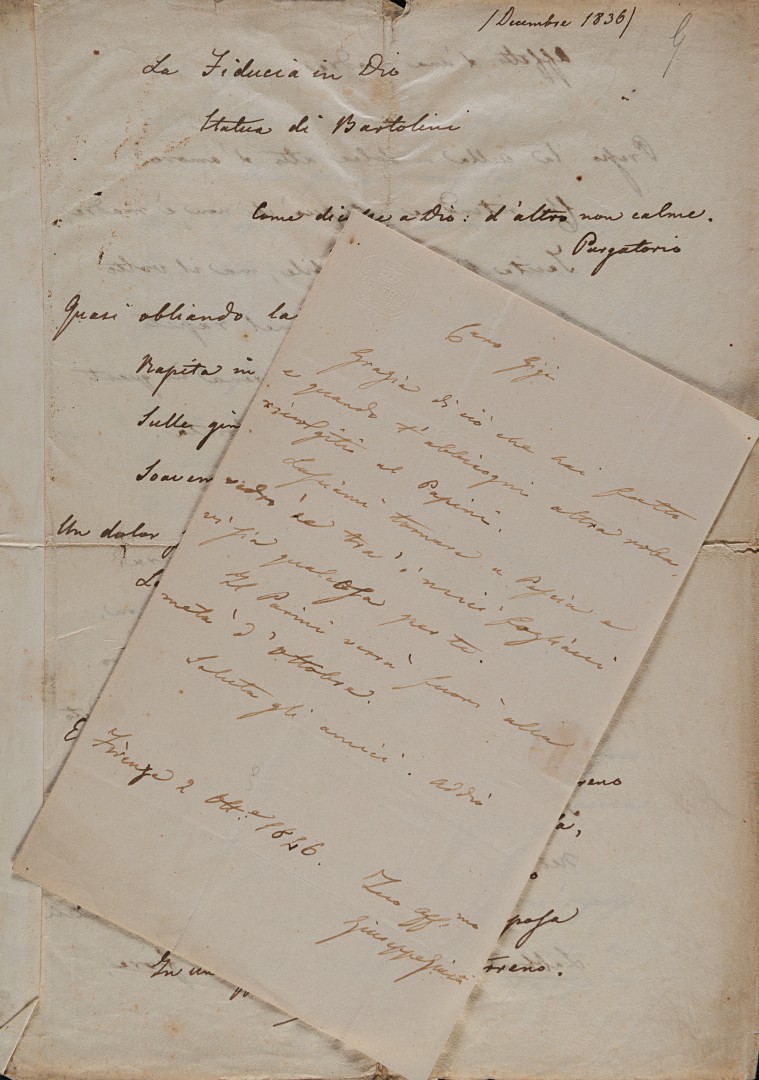 /Decembre 1836/
La Fiducia in Dio
Statua di Bartolini
Come di a Dio: d'altro non calme.
Purgatorio
Quasi obliando la
Rapita in
Sulle gin
Soavem
Un dolor
L
E
reno
là,
o
posa
In un rreno.
Caro Gigi
Grazie di ciò che hai fatto
e quando t'abbisogni altra roba,
rivolgiti al Papini.
Lasciami tornare a Pescia e
vedrò se tra i miei fogliacci
vi sia qualcosa per te.
Il Parini verrà fuori alla
metà d'ottobre.
Saluta gli amici. Addio
Firenze 2 Ott.e 1846.
Tuo aff.mo
Giuseppe Giusti